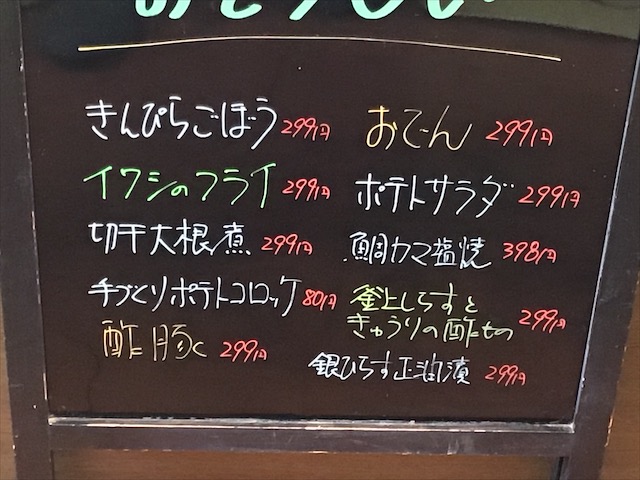 きんぴらごぼう 299円
イワシのフライ 299円
切干大根煮 299円
手づくりポテトコロッケ 80円
酢豚 299円
おでん 299円
ポテトサラダ 299円
鯛カマ塩焼 398円
釜上しらすと
きゅうりの酢もの 299円
銀ひらす正油漬 299円